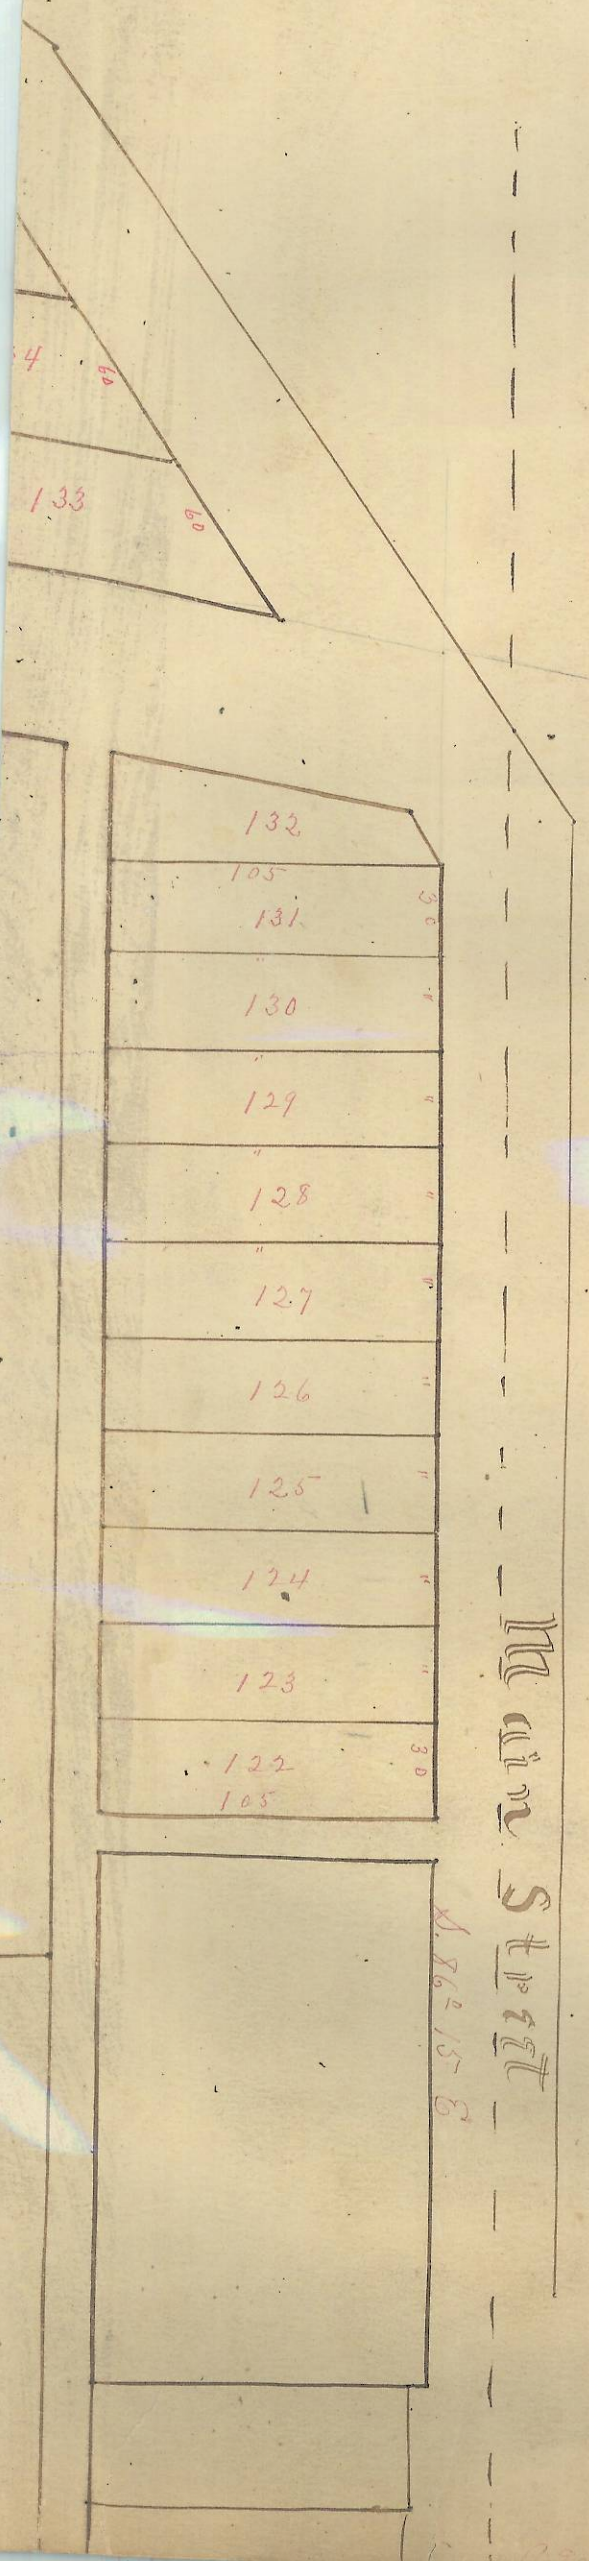 4
60
133
60
132
105
131
30
"
130
"
"
129
"
"
128
"
"
127
"
126
"
125
"
124
"
123
"
122
30
105
S. 86º 15 E
Main Street